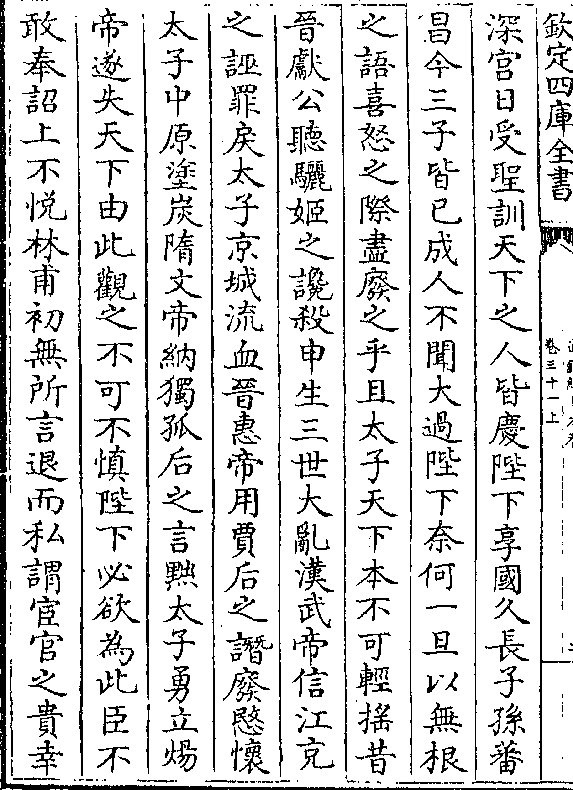 欽定四庫全書
卷三十一上
深宫日受聖訓天下之人皆慶陛下享國久長子孫蕃
昌今三子皆已成人不聞大過陛下奈何一旦以無根
之語喜怒之際盡廢之乎且太子天下本不可輕揺昔
晉獻公聽驪姬之讒殺申生三世大亂漢武帝信江充
之誣罪戾太子京城流血晉惠帝用賈后之譖廢愍懷
太子中原塗炭隋文帝納獨孤后之言黜太子勇立煬
帝遂失天下由此觀之不可不慎陛下必欲為此臣不
敢奉詔上不悦林甫初無所言退而私謂宦官之貴幸